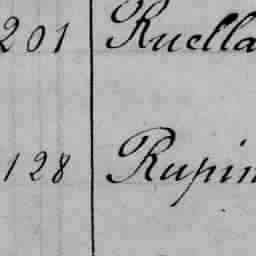 201 Ruella
128 Rupin